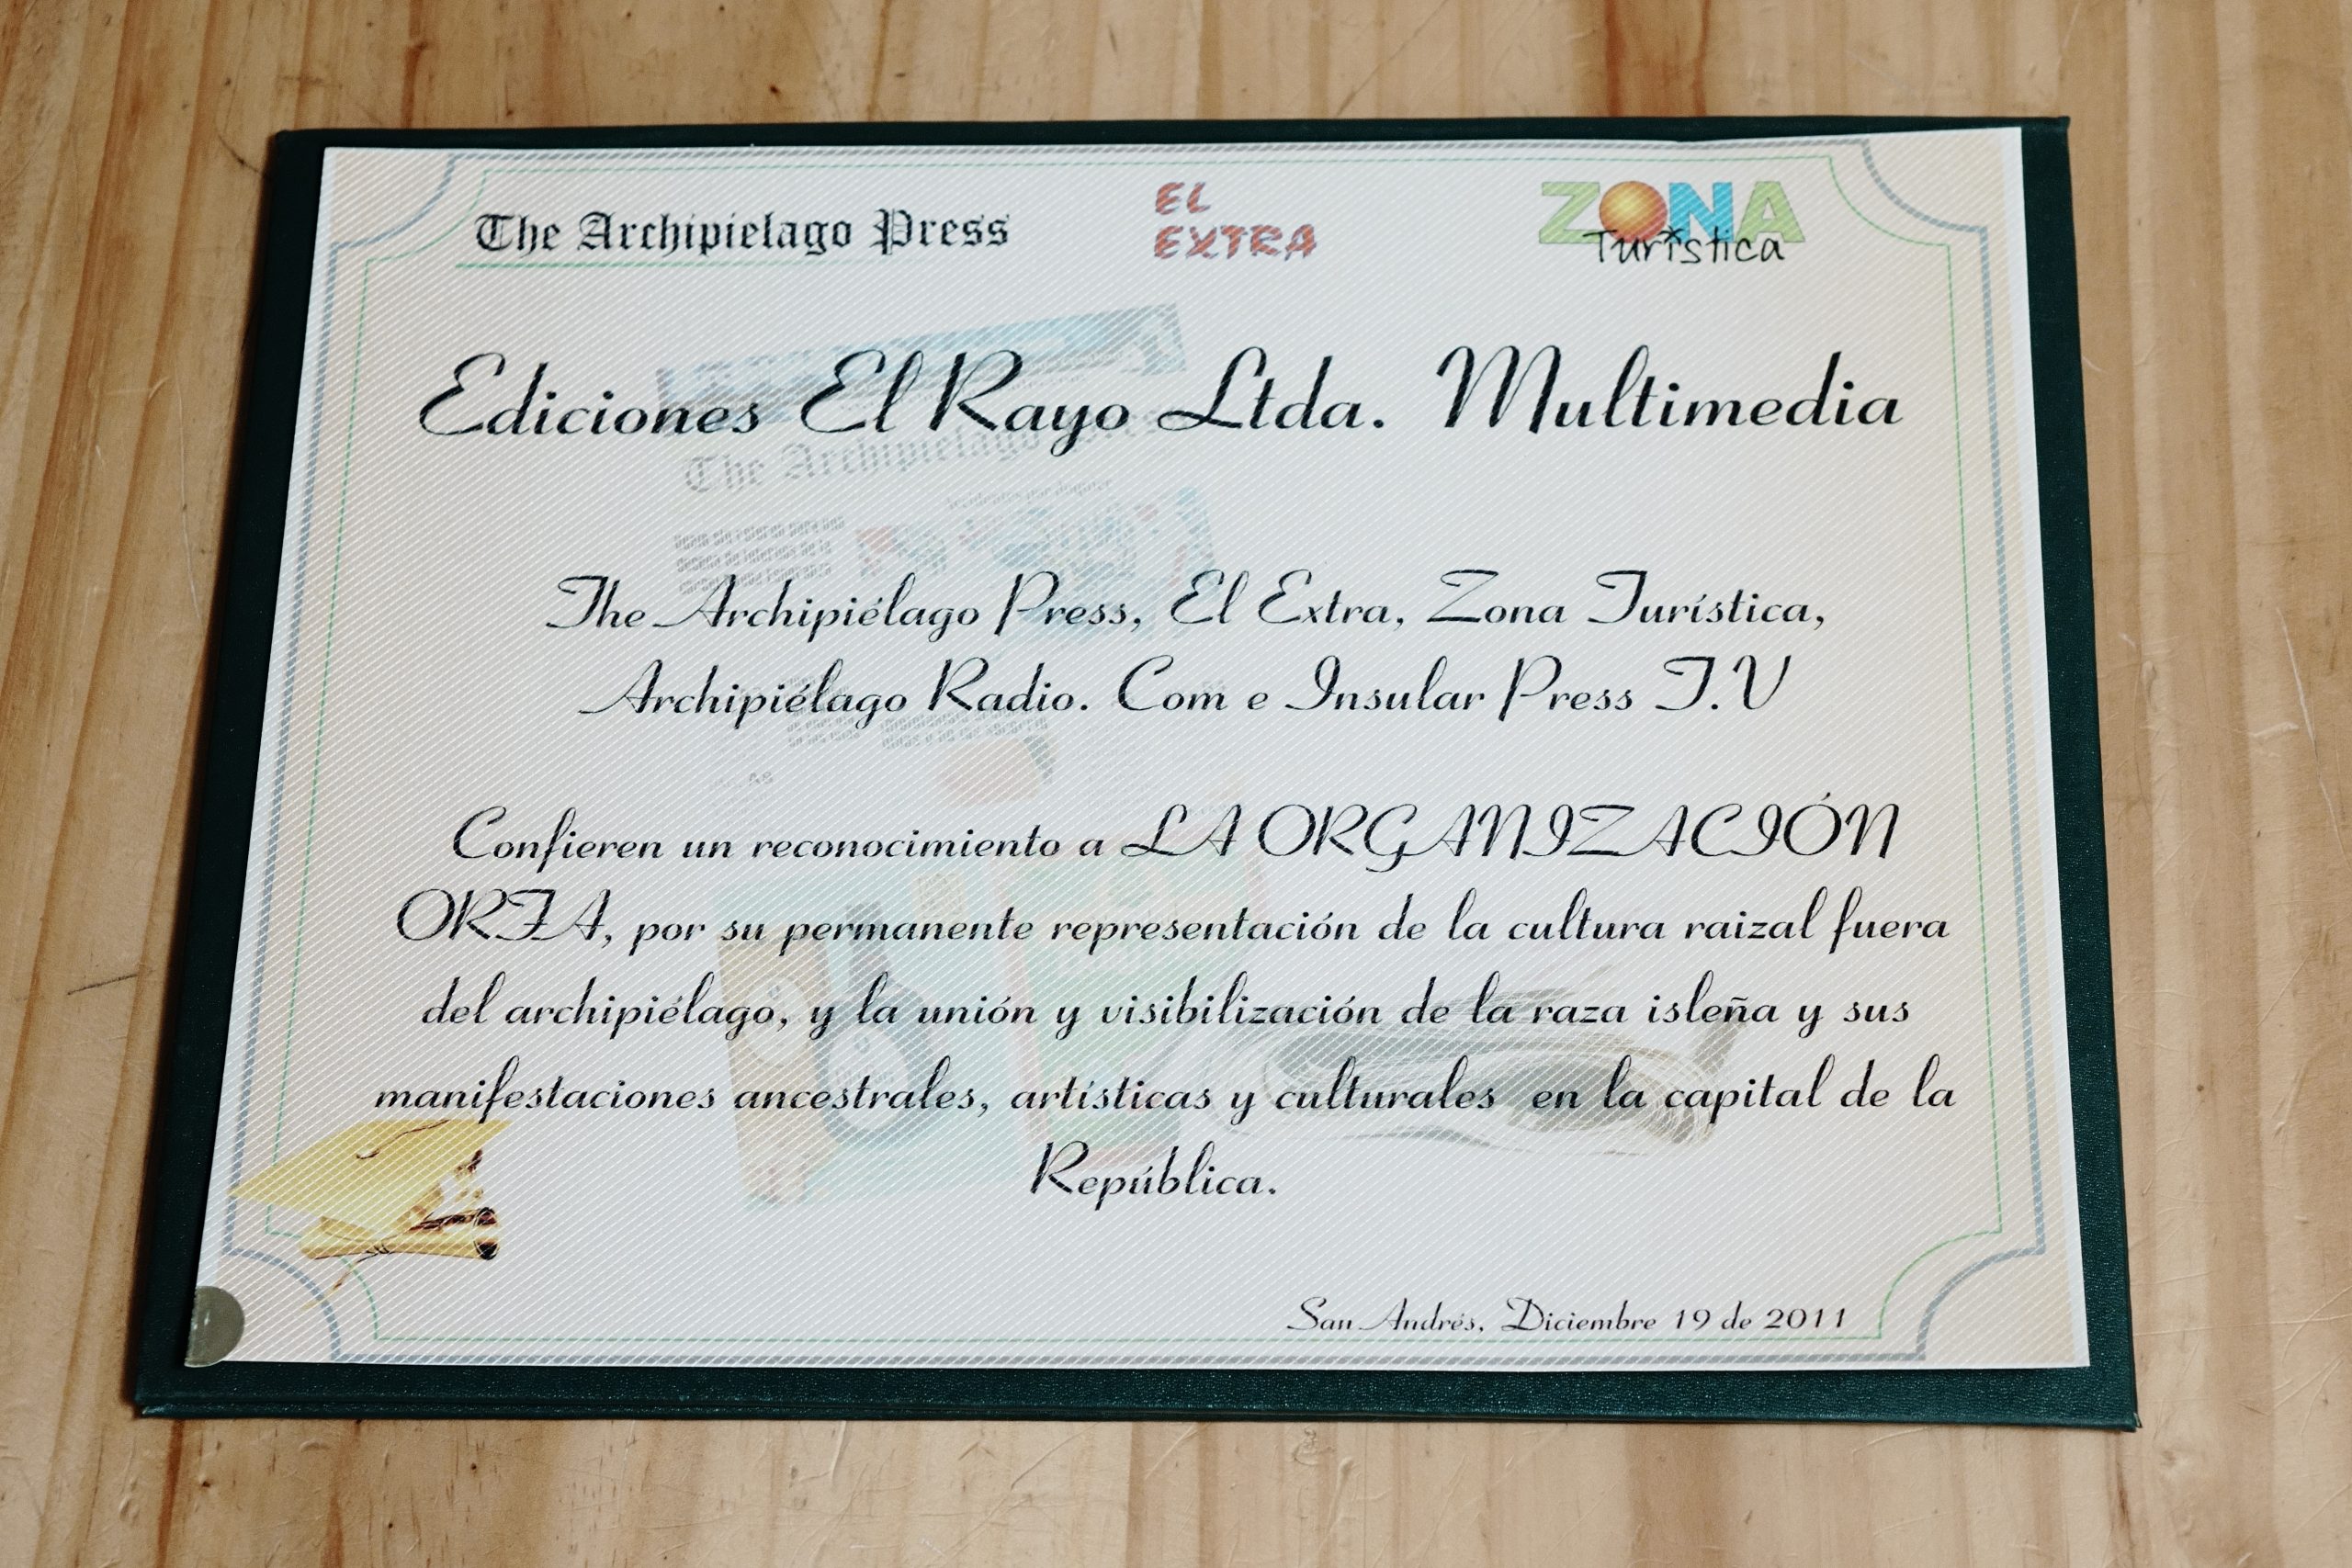 The Archipielago Press
EL
EXTRA
ZONA
Turística
Ediciones El Rayo Ltda. Multimedia
The Archipielago
The Archipiélago Press, El Extra, Zona Turística,
Archipiélago Radio. Com e Insular Press T.V
Confieren un reconocimiento a LA ORGANIZACIÓN
ORFA, por su permanente representación de la cultura raizal fuera
del archipiélago, y la unión y visibilización de la raza isleña y sus
manifestaciones ancestrales, artísticas y culturales en la capital de la
República.
San Andrés, Diciembre 19 de 2011